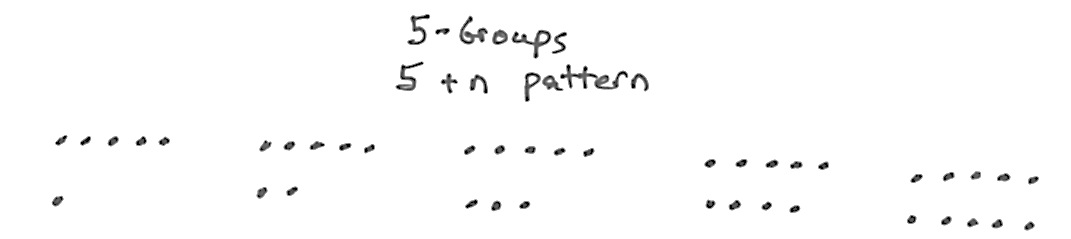 5-Groups
5 + n pattern